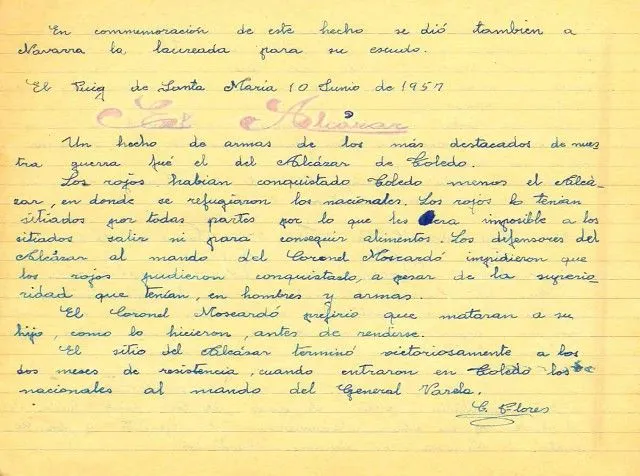 En commemoración de este hecho se dió tambien a
Navarra la laureada para su escudo.
El Puig de Santa María 10 Junio de 1957
El Alcázar
Un hecho de armas de los más destacados de nues
tra guerra fué el del Alcázar de Toledo.
Los rojos habian conquistado Toledo menos el Alcá-
zar, en donde se refugiaron los nacionales. Los rojos lo tenían
sitiados por todas partes por lo que les era imposible a los
sitiados salir ni para conseguir alimentos. Los defensores del
Alcázar al mando del Coronel Moscardó impidieron que
los rojos pudieron conquistarlo, a pesar de la superio-
ridad que tenían, en hombres y armas.
El Coronel Moscardó prefirio que mataran a su
hijo, como lo hicieron, antes de rendirse.
El sitio del Alcázar terminó victoriosamente a los
dos meses de resistencia, cuando entraron en Toledo los
nacionales al mando del General Varela.
C. Flores